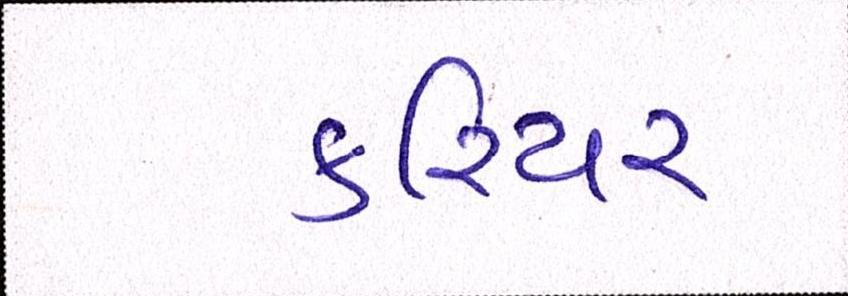 કરિયર